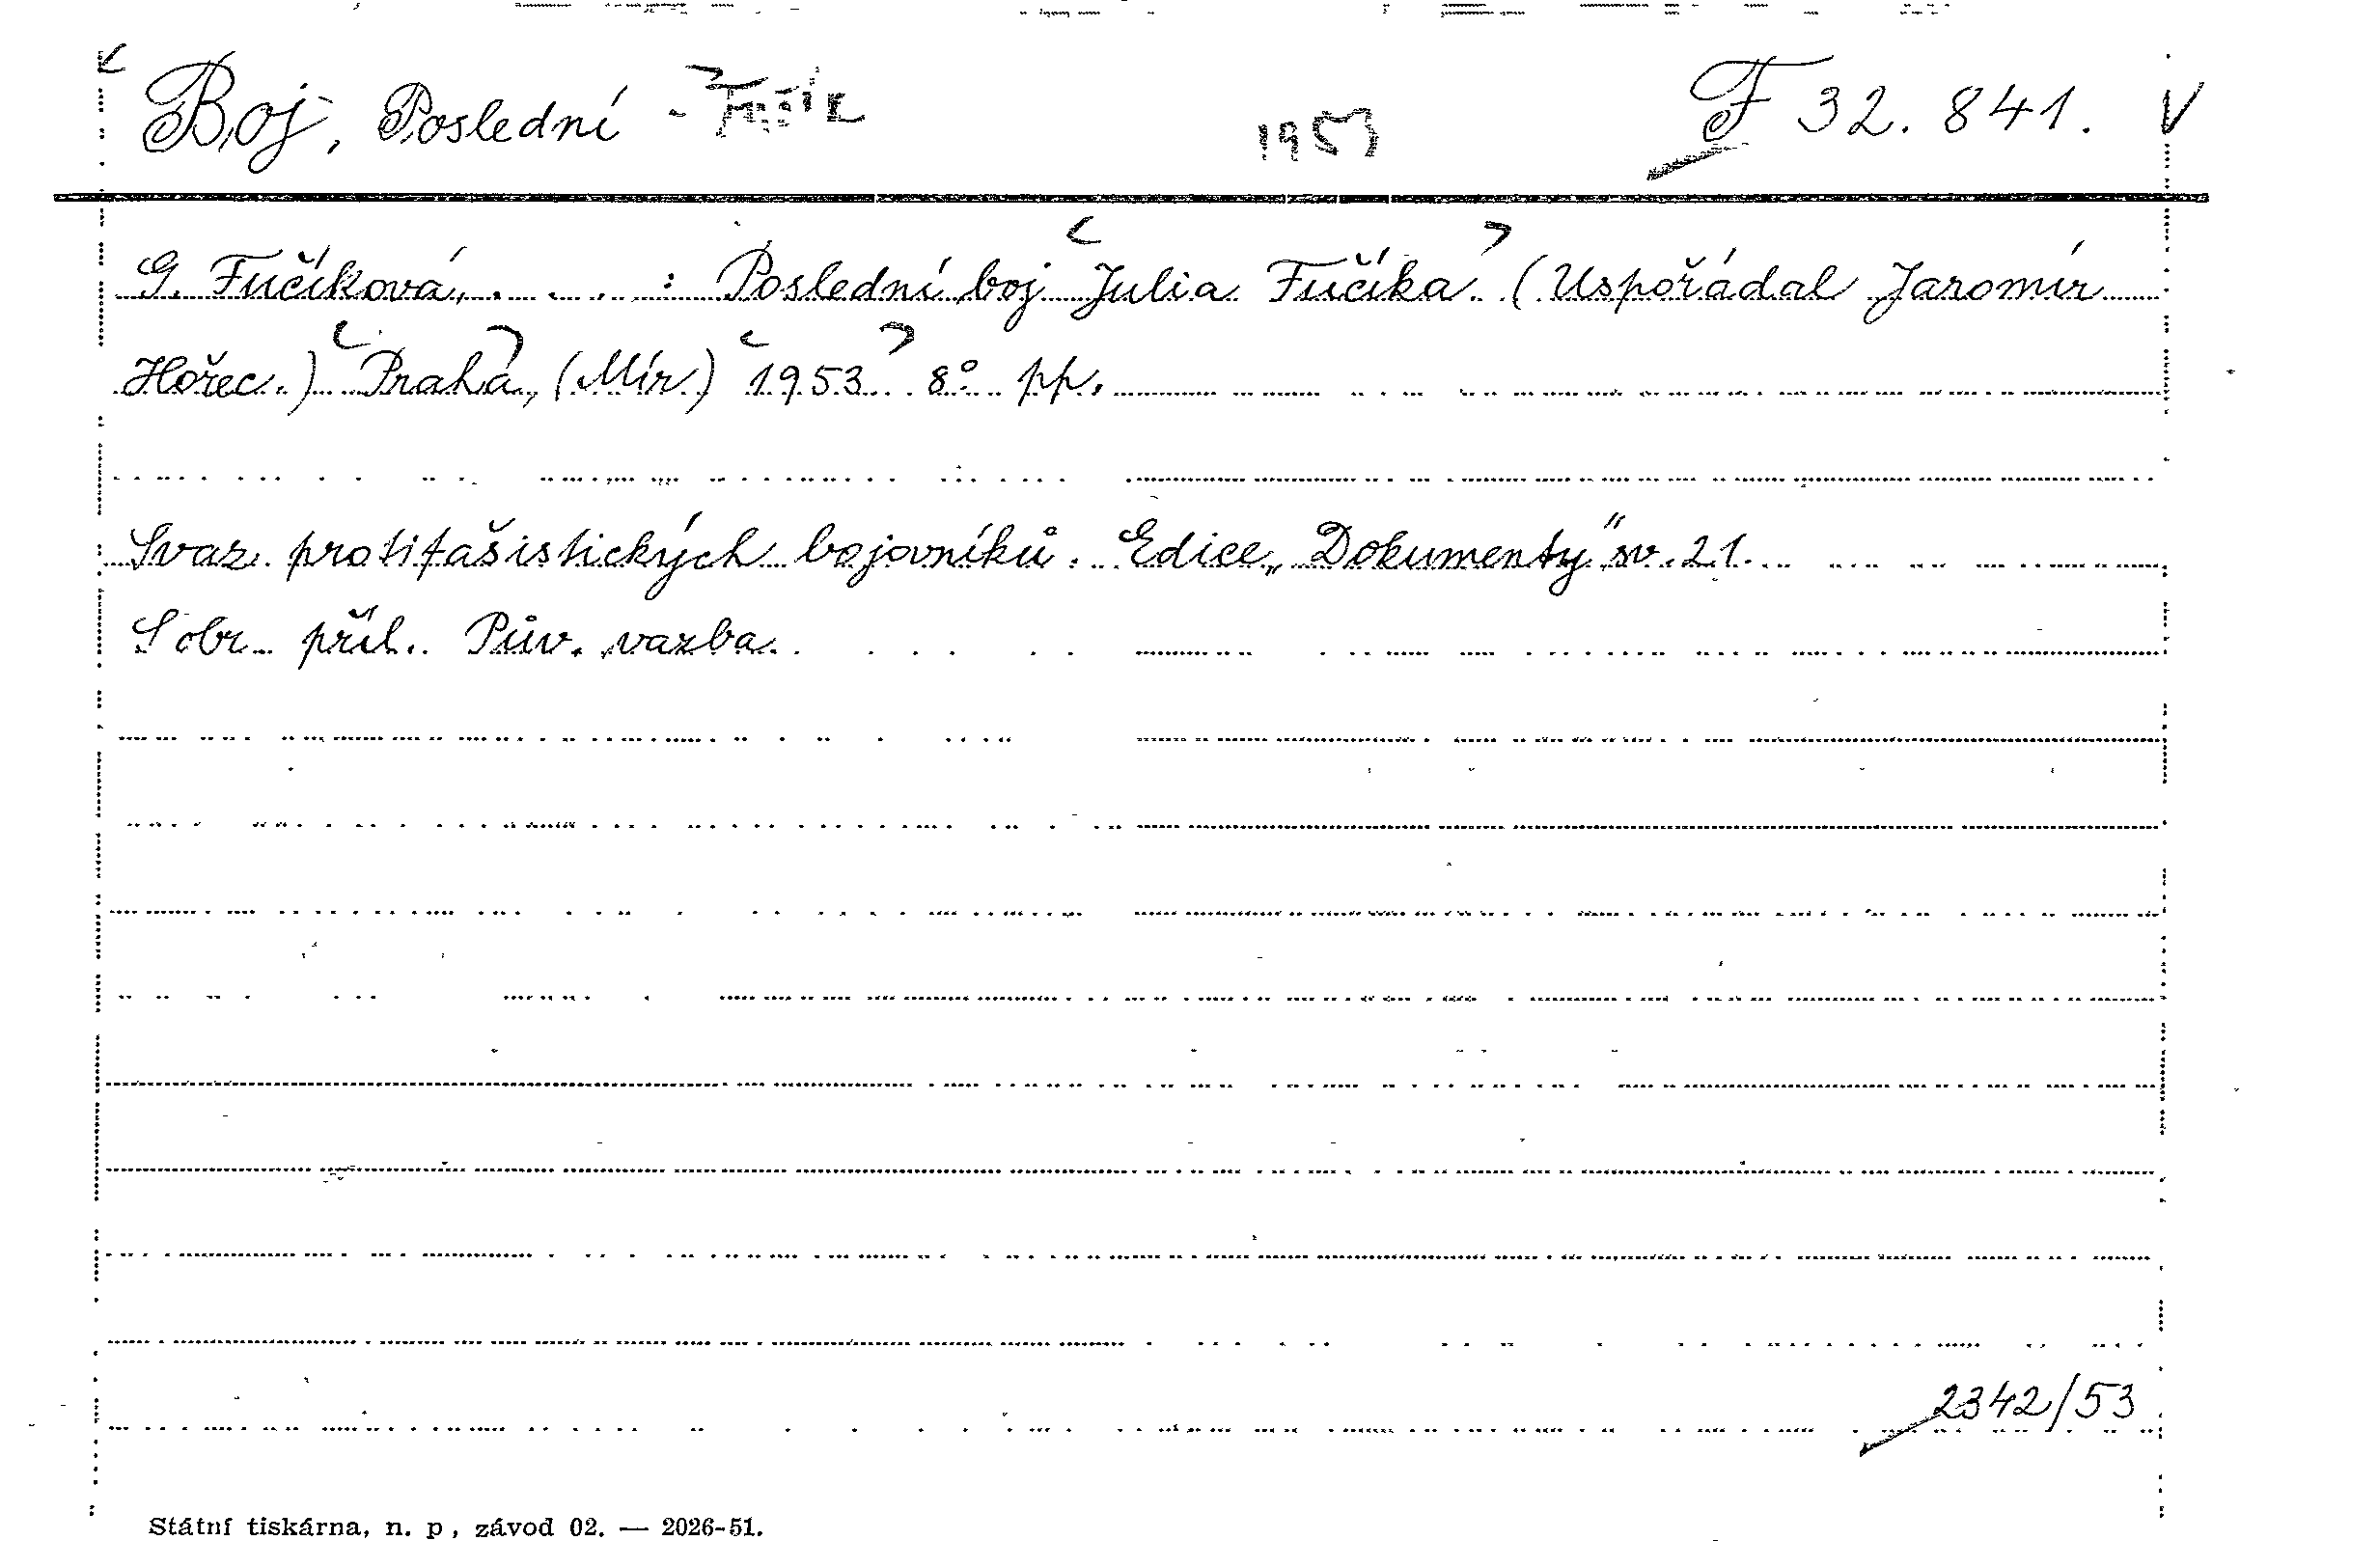 Boj, Poslední - Fučík 1953 F 32.841. V
G. Fučíková, . . . . : Poslední boj Julia Fučíka. (Uspořádal Jaromír
Hořec.) Praha, (Mír) 1953. 8° pp.
Svaz protifašistických bojovníků. Edice „Dokumenty" sv. 21.
S obr. příl. Pův. vazba.
2342/53
Státní tiskárna, n. p., závod 02. — 2026-51.